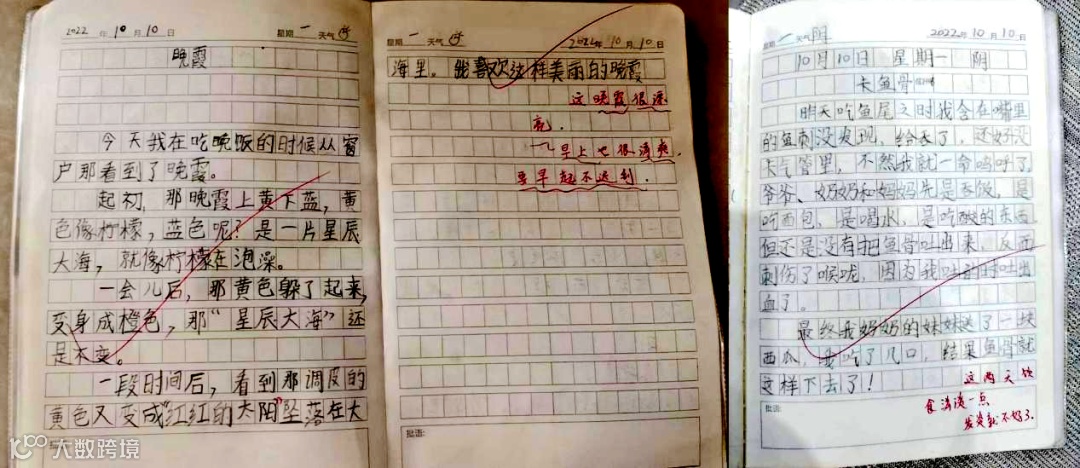 2022 年 10 月 10 日 星期 一 天气
晚霞
今天我在吃晚饭的时候从窗
户那看到了晚霞。
起初，那晚霞上黄下蓝，黄
色像柠檬，蓝色呢？是一片星辰
大海，就像柠檬在泡澡。
一会儿后，那黄色躲了起来，
变身成橙色，那“星辰大海”还
是不变。
一段时间后，看到那调皮的
黄色又变成“红红的太阳”坠落在大
星期 一 天气 2022年 10月 10日
海里。我喜欢这样美丽的晚霞
这晚霞很漂
亮.
早上也很清爽.
要早起不迟到.
批语:
星期 一 天气 阴 2022年 10月 10日
10月10日 星期一 阴
卡鱼骨
明天吃鱼尾之时我含在嘴里
的鱼刺没发现，给吞了，还好没
卡气管里，不然我就一命呜呼了
爷爷、奶奶和妈妈先是吞饭，是
吃面包，是喝水，是吃酸的东西
但还是没有把鱼骨吐出来，反而
刺伤了喉咙，因为我吐的时吐出
血了。
最终我奶奶的妹妹送了一块
西瓜，我吃了几口，结果鱼骨就
这样下去了！
这两天饮
食清淡一点
发炎就不好了.
批语:
大数跨境